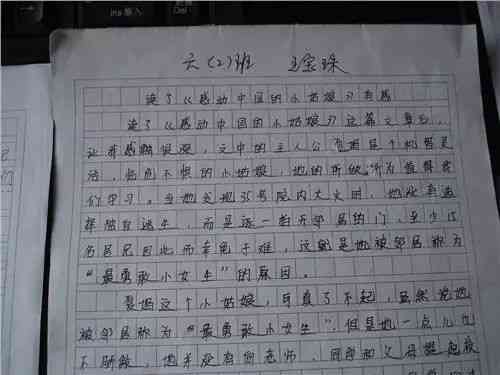 Ins 插入
Del
六(2)班 王宝珠
读了《感动中国的小姑娘》有感
读了《感动中国的小姑娘》这篇文章后，
让我感触很深，文中的主人公是个机智灵
活，临危不惧的小姑娘，她的所做所为值得我
们学习。当她发现35号院内大火时，她没有选
择独自逃生，而是逐一拍开邻居的门，至少15
名居民因此而幸免于难，这就是她被邻居称为
“最勇敢小女生”的原因。
这个小姑娘，可真了不起，虽然说她
被邻居称为“最勇敢小女生”，但是她一点儿也
不骄傲，他并没有向老师、同学和父母提起救